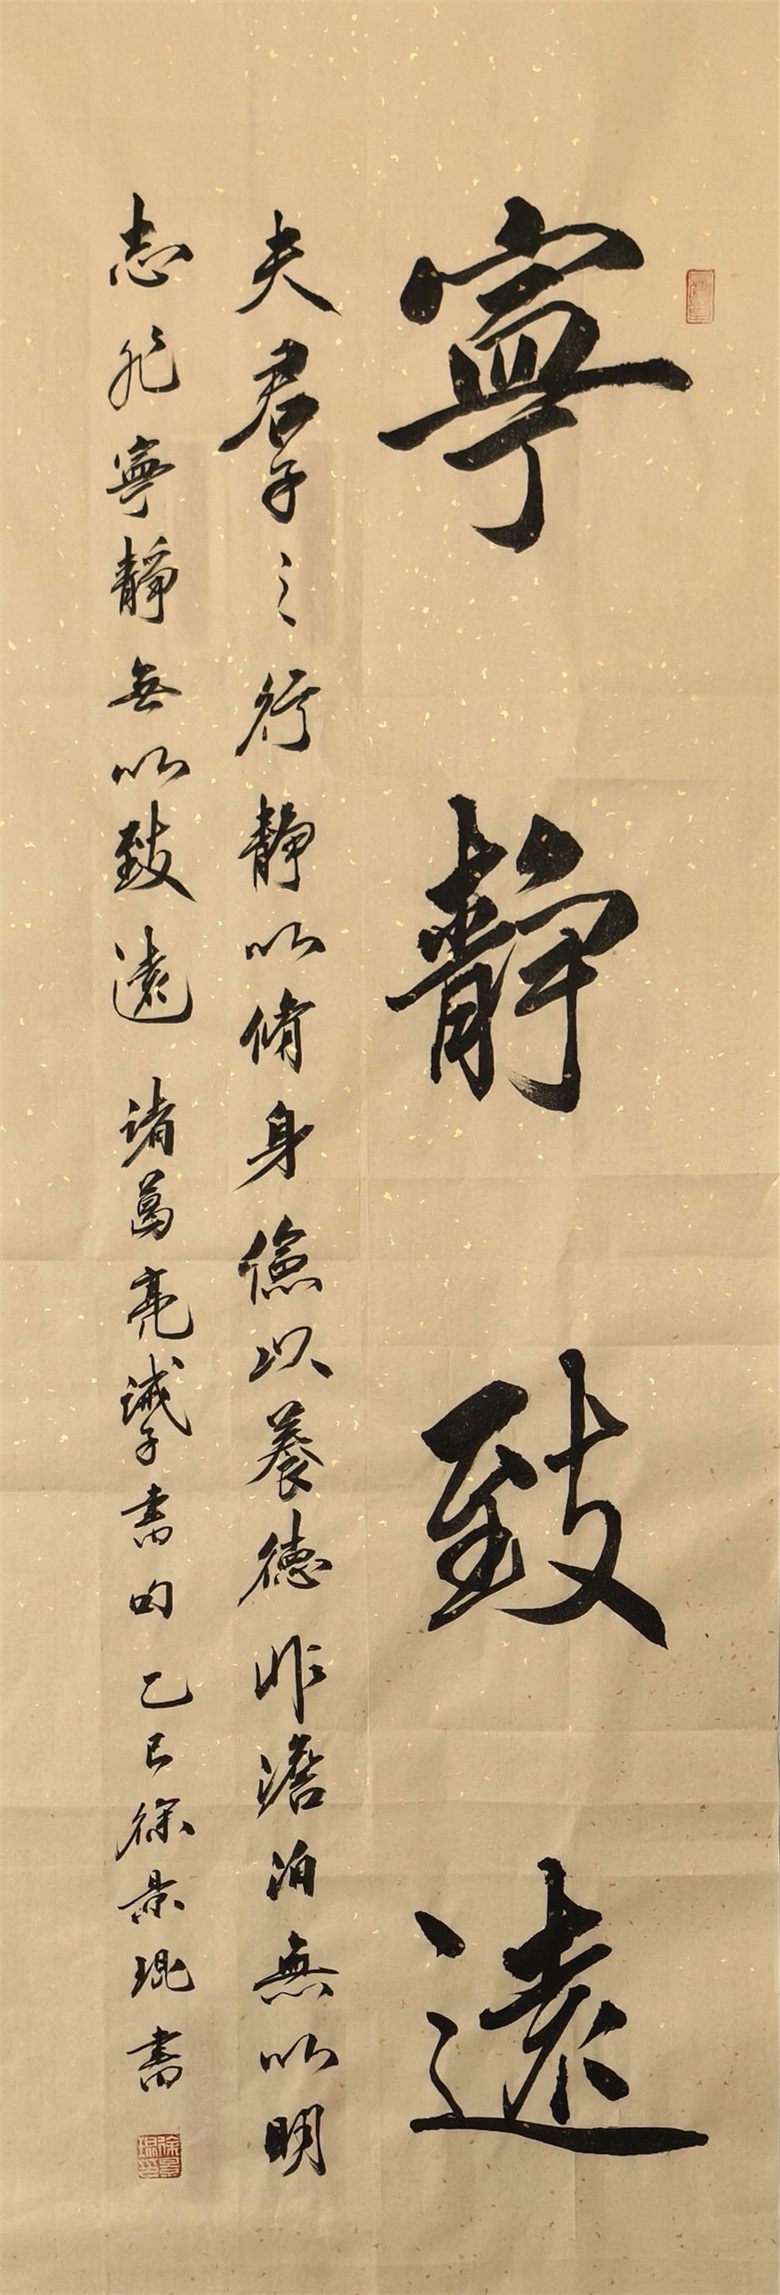 寧靜致遠
夫君子之行靜以脩身儉以養德非澹泊無以明
志非寧靜無以致遠 諸葛亮誡子書句 乙巳徐景琨書
徐景琨印